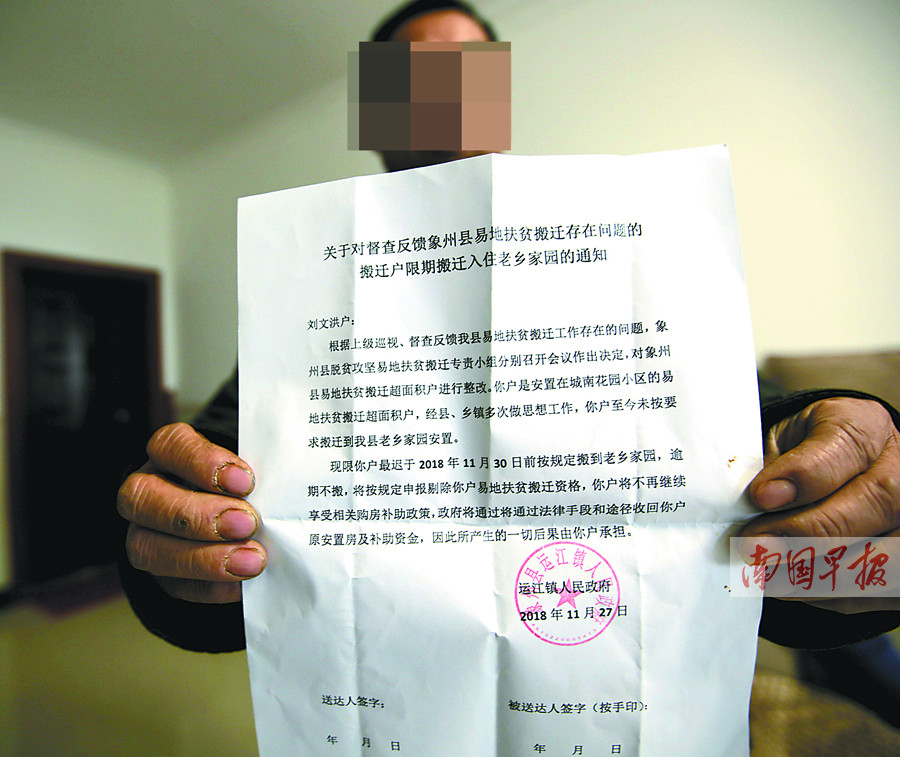 关于对督查反馈象州县易地扶贫搬迁存在问题的
搬迁户限期搬迁入住老乡家园的通知
刘文洪户：
根据上级巡视、督查反馈我县易地扶贫搬迁工作存在的问题，象
州县脱贫攻坚易地扶贫搬迁专责小组分别召开会议作出决定，对象州
县易地扶贫搬迁超面积户进行整改。你户是安置在城南花园小区的易
地扶贫搬迁超面积户，经县、乡镇多次做思想工作，你户至今未按要
求搬迁到我县老乡家园安置。
现限你户最迟于 2018 年 11 月 30 日前按规定搬到老乡家园，逾
期不搬，将按规定申报剔除你户易地扶贫搬迁资格，你户将不再继续
享受相关购房补助政策，政府将通过将通过法律手段和途径收回你户
原安置房及补助资金，因此所产生的一切后果由你户承担。
象州县运江镇人民政府
运江镇人民政府
2018 年 11 月 27 日
南国早报
送达人签字： 被送达人签字（按手印）：
年 月 日 年 月 日